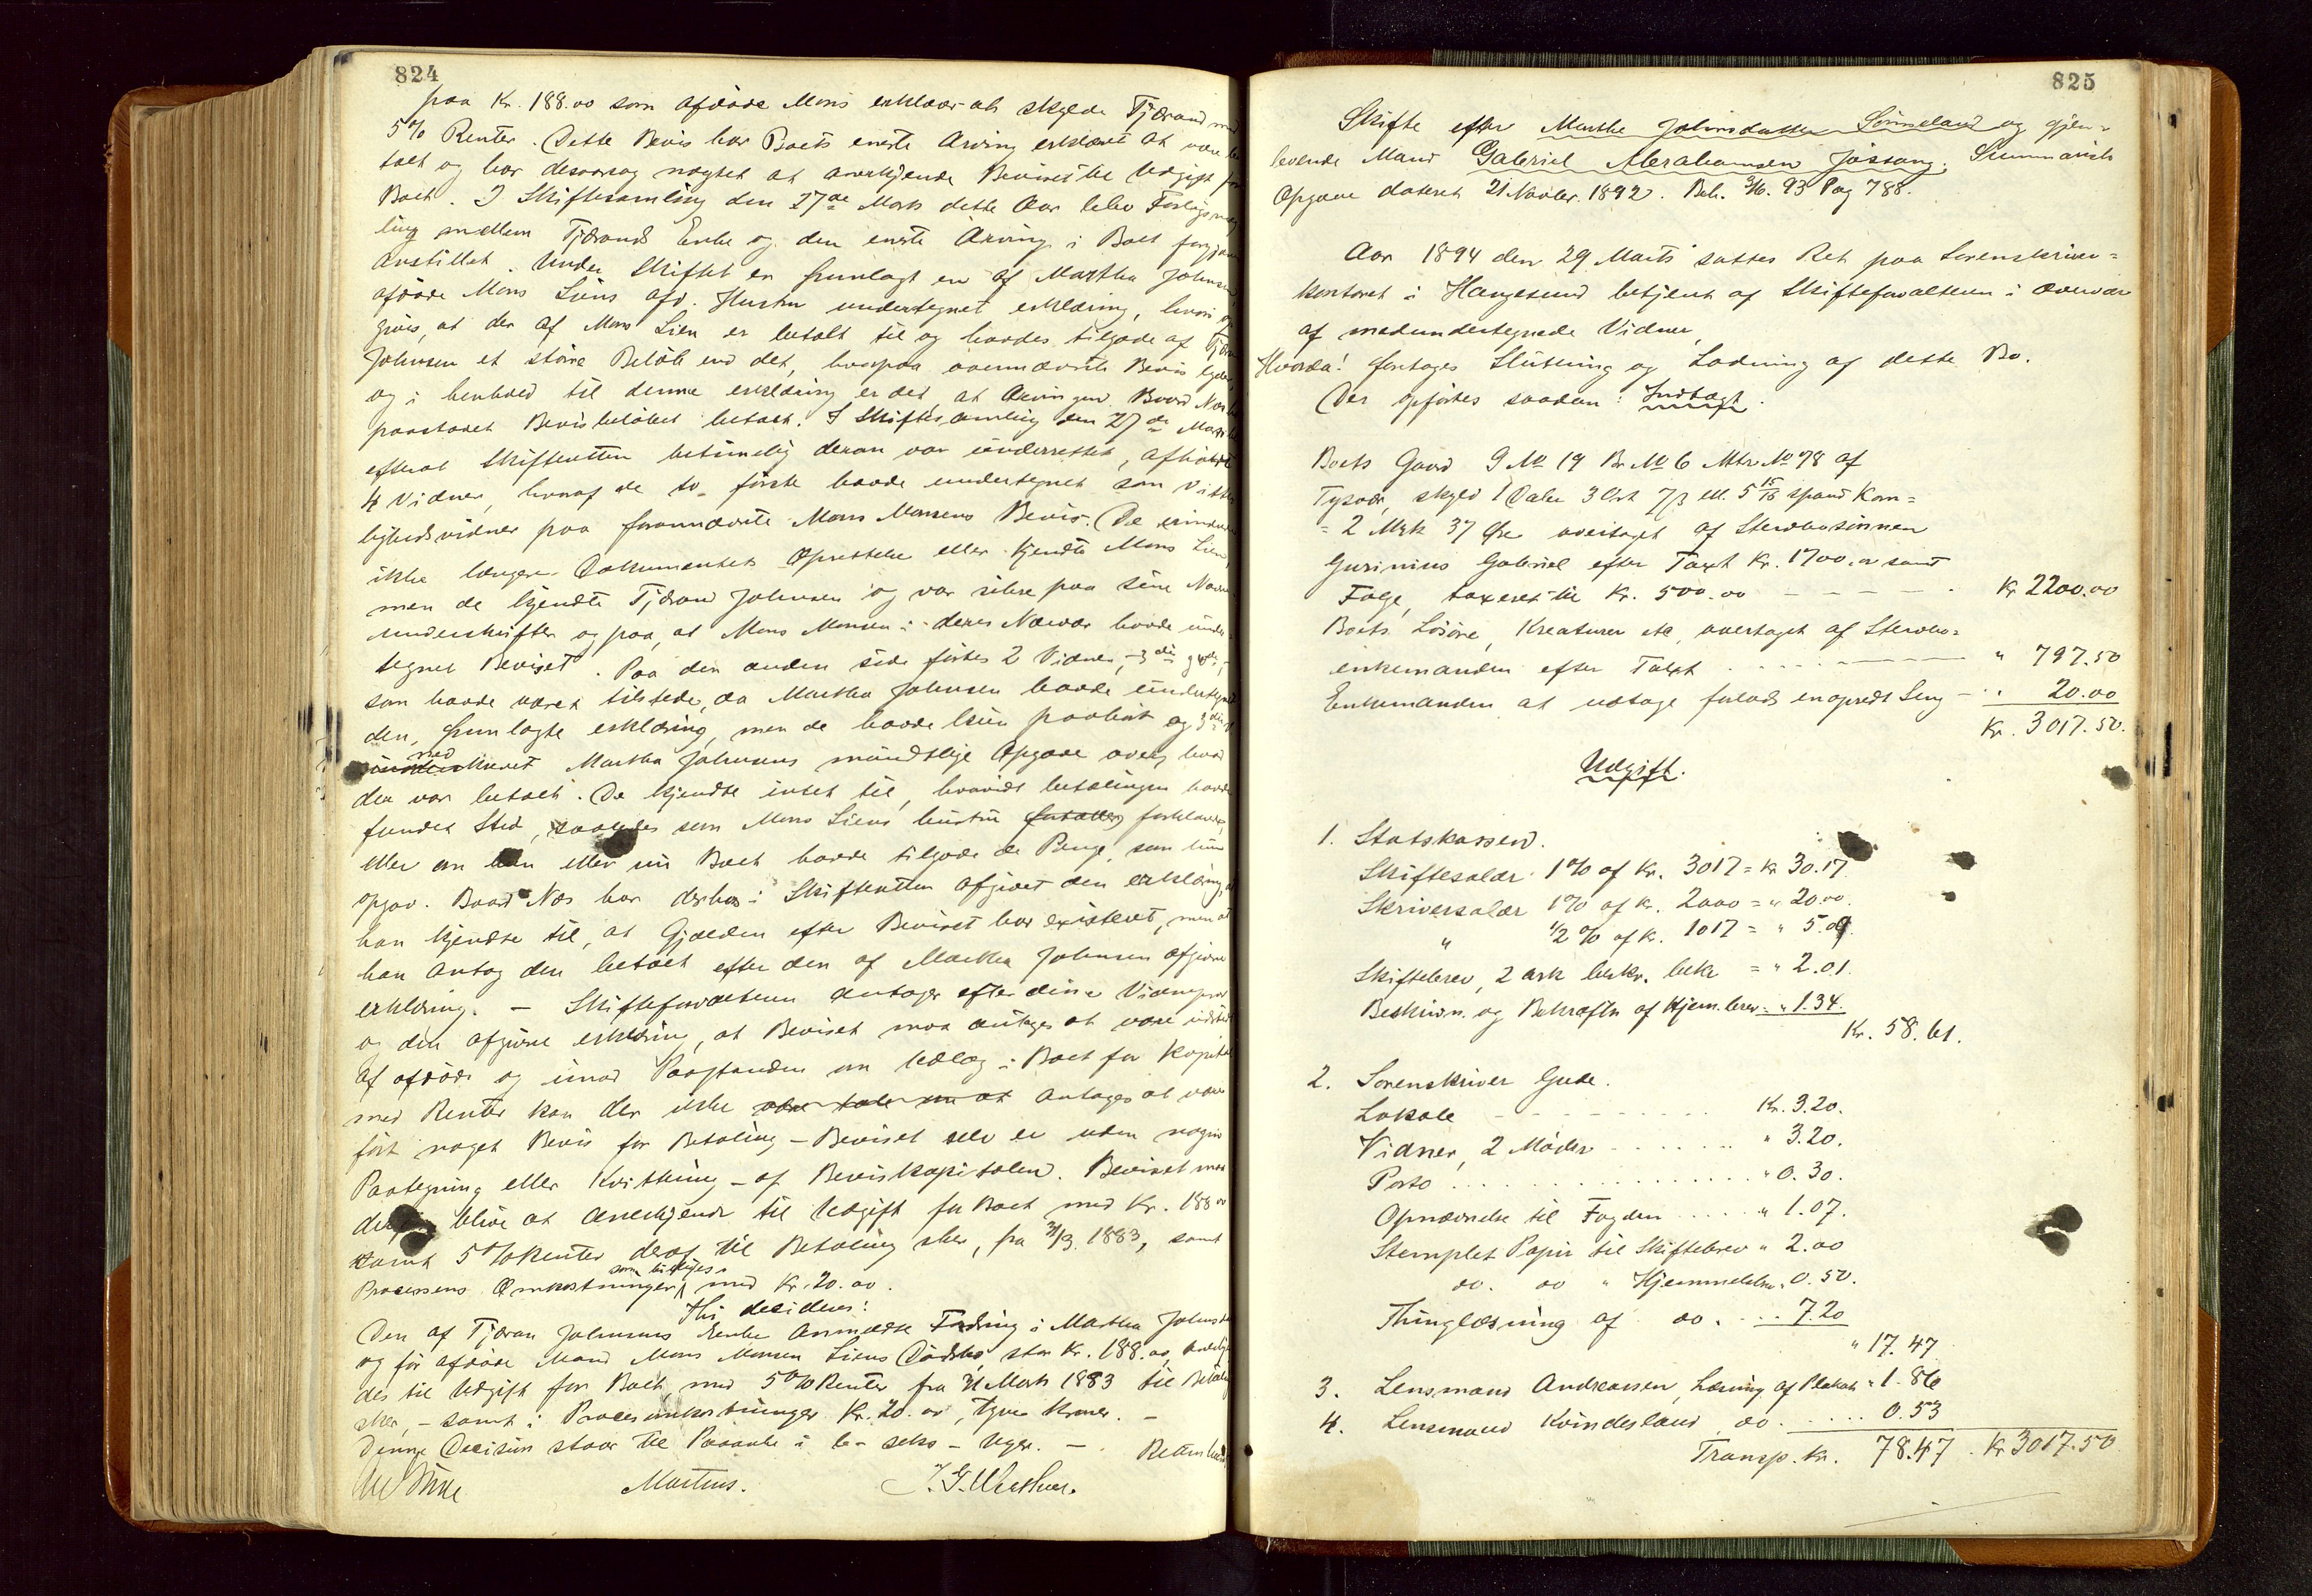 824
paa Kr. 188.00 som afdøde Mons erklær at skylde Tjærand med
5% Renter. Dette Bevis har Boets eneste Arving erklæret at være be
talt og har desaarsag nægtet at anerkjende Beviset til Udgift for
Boet. I Skiftesamling den 27de Marts dette Aar blev Forligsmæg
ling mellem Tjærands Enke og den eneste Arving i Boet forgjæves
anstillet. Under Skiftet er fremlagt en af Martha Johnsen
afdøde Mons Liens afd. Hustru undertegnet erklæring, hvori op
gives, at der af Mons Lien er betalt til og havdes tilgode af Tjæran
Johnsen et større Beløb end det, hvorpaa ovennævnte Bevis lyder,
og i henhold til denne erklæring er det, at Arvingen Baard Næs har
paastaaet Bevisbeløbet betalt. I Skiftesamling den 27de Marts
efterat Skifteretten betimelig derom var underrettet, afhørtes
4 Vidner, hvoraf de to første havde undertegnet som Vitter
lighedsvidner paa forannævnte Mons Monsens Bevis. De erindrede
ikke længere Dokumentets Oprettelse eller kjendte Mons Lien,
men de kjendte Tjærand Johnsen og var sikre paa sine Navne
underskrifter og paa, at Mons Monsen i deres Nærvær havde under
tegnet Beviset. Paa den anden side førtes 2 Vidner, 3die og 4de,
som havde været tilstede, da Martha Johnsen havde undertegnet
den fremlagte erklæring, men de havde kun paahørt og 3die
nedskrevet Martha Johnsens mundtlige Opgave over, hvad
der var betalt. De kjendte intet til, hvorvidt betalingen havde
fundet Sted, saaledes som Mons Liens hustru fortalte forklarede,
eller om han eller nu Boet havde tilgode de Penge, som hun
opgav. Baard Næs har derhos i Skifteretten afgivet den erklæring, at
han kjendte til, at Gjælden efter Beviset har existeret, men at
han antog den betalt efter den af Martha Johnsen afgivne
erklæring. — Skifteforvalteren antager efter disse Vidneprov
og den afgivne erklæring, at Beviset maa antages at være udstedt
af afdøde og imod Paastanden om Udlæg i Boet for Kapital
med Renter kan der ikke antages at være
ført noget Bevis for Betaling – Beviset selv er uden nogen
Paategning eller Kvittering – af Beviskapitalen. Beviset maa
derfor blive at anerkjende til Udgift for Boet med Kr. 188.00
samt 5% Renter deraf til Betaling sker, fra 31/3. 1883, samt
Processens Omkostninger som billiges med Kr. 20.00.
Thi decideres:
Den af Tjæran Johnsens Enke anmeldte Fordring i Martha Johnsdtr
og før afdøde Mand Mons Monsen Liens Dødsbo, stor Kr. 188.00, udlæg
des til Udgift for Boet med 5% Renter fra 31 Marts 1883 til Betaling
sker, – samt i Procesomkostninger Kr. 20.00, tyve Kroner. –
Denne Decision staar til Paaanke i 6 – seks – Uger. – Retten hævet
Martens. J. G. Westhue.
825
Skifte efter Marthe Johnsdatter Sønneland og gjen=
levende Mand Gabriel Abrahamsen Jøssang. Summarisk
Opgave dateret 21 Novber. 1892. Beh. 3/6. 93 Pag 788.
Aar 1894 den 29 Marts sattes Ret paa Sorenskriver=
kontoret i Haugesund betjent af Skifteforvalteren i Overvær
af medundertegnede Vidner,
Hvorda! foretoges Slutning og Lodning af dette Bo.
Der opførtes saadan: Indtægt.
Boets Gaard G No 19 Br No 6 Mtr No 78 af
Tysvær, skyld 1 Daler 3 Ort 7/3 ell. 5 15/16 spand Korn=
= 2 Mrk 37 Øre overtaget af Stervbosønnen
Gurinius Gabriel efter Taxt Kr. 1700.00 samt
Følge, taxeret til Kr. 500.00 – – – – – Kr 2200.00
Boets Løsøre, Kreaturer etc, overtaget af Stervbo=
enkemanden efter Taxt . . . . – – – – " 797.50
Enkemanden at udtage forlods en opredt Seng – . . 20.00
Kr. 3017.50.
Udgift.
1. Statskassen.
Skiftesalær 1% af Kr. 3017 = Kr 30.17
Skriversalær 1% af Kr. 2000 = " 20.00.
" 1/2% af Kr. 1017 = " 5.09.
Skiftebrev, 2 ark beskr. bekr = " 2.01.
Beskrivn. og Bekræftn af Hjem.brev = " 1.34.
Kr. 58.61.
2. Sorenskriver Gude.
Lokale – – – – – – Kr. 3.20.
Vidner, 2 Møder – . . . . . " 3.20.
Porto . . . . . . . . . . " 0.30.
Opnævnelse til Fogden . . . . " 1.07.
Stemplet Papir til Skiftebrev " 2.00
do. do " Hjemmelsbrev " 0.50.
Thinglæsning af do. . . . 7.20
" 17.47
3. Lensmand Andreassen, Læsning af Plakat " 1.86
4. Lensmand Kvindesland do . . . . . 0.53
Transp. Kr. 78.47 . Kr 3017.50